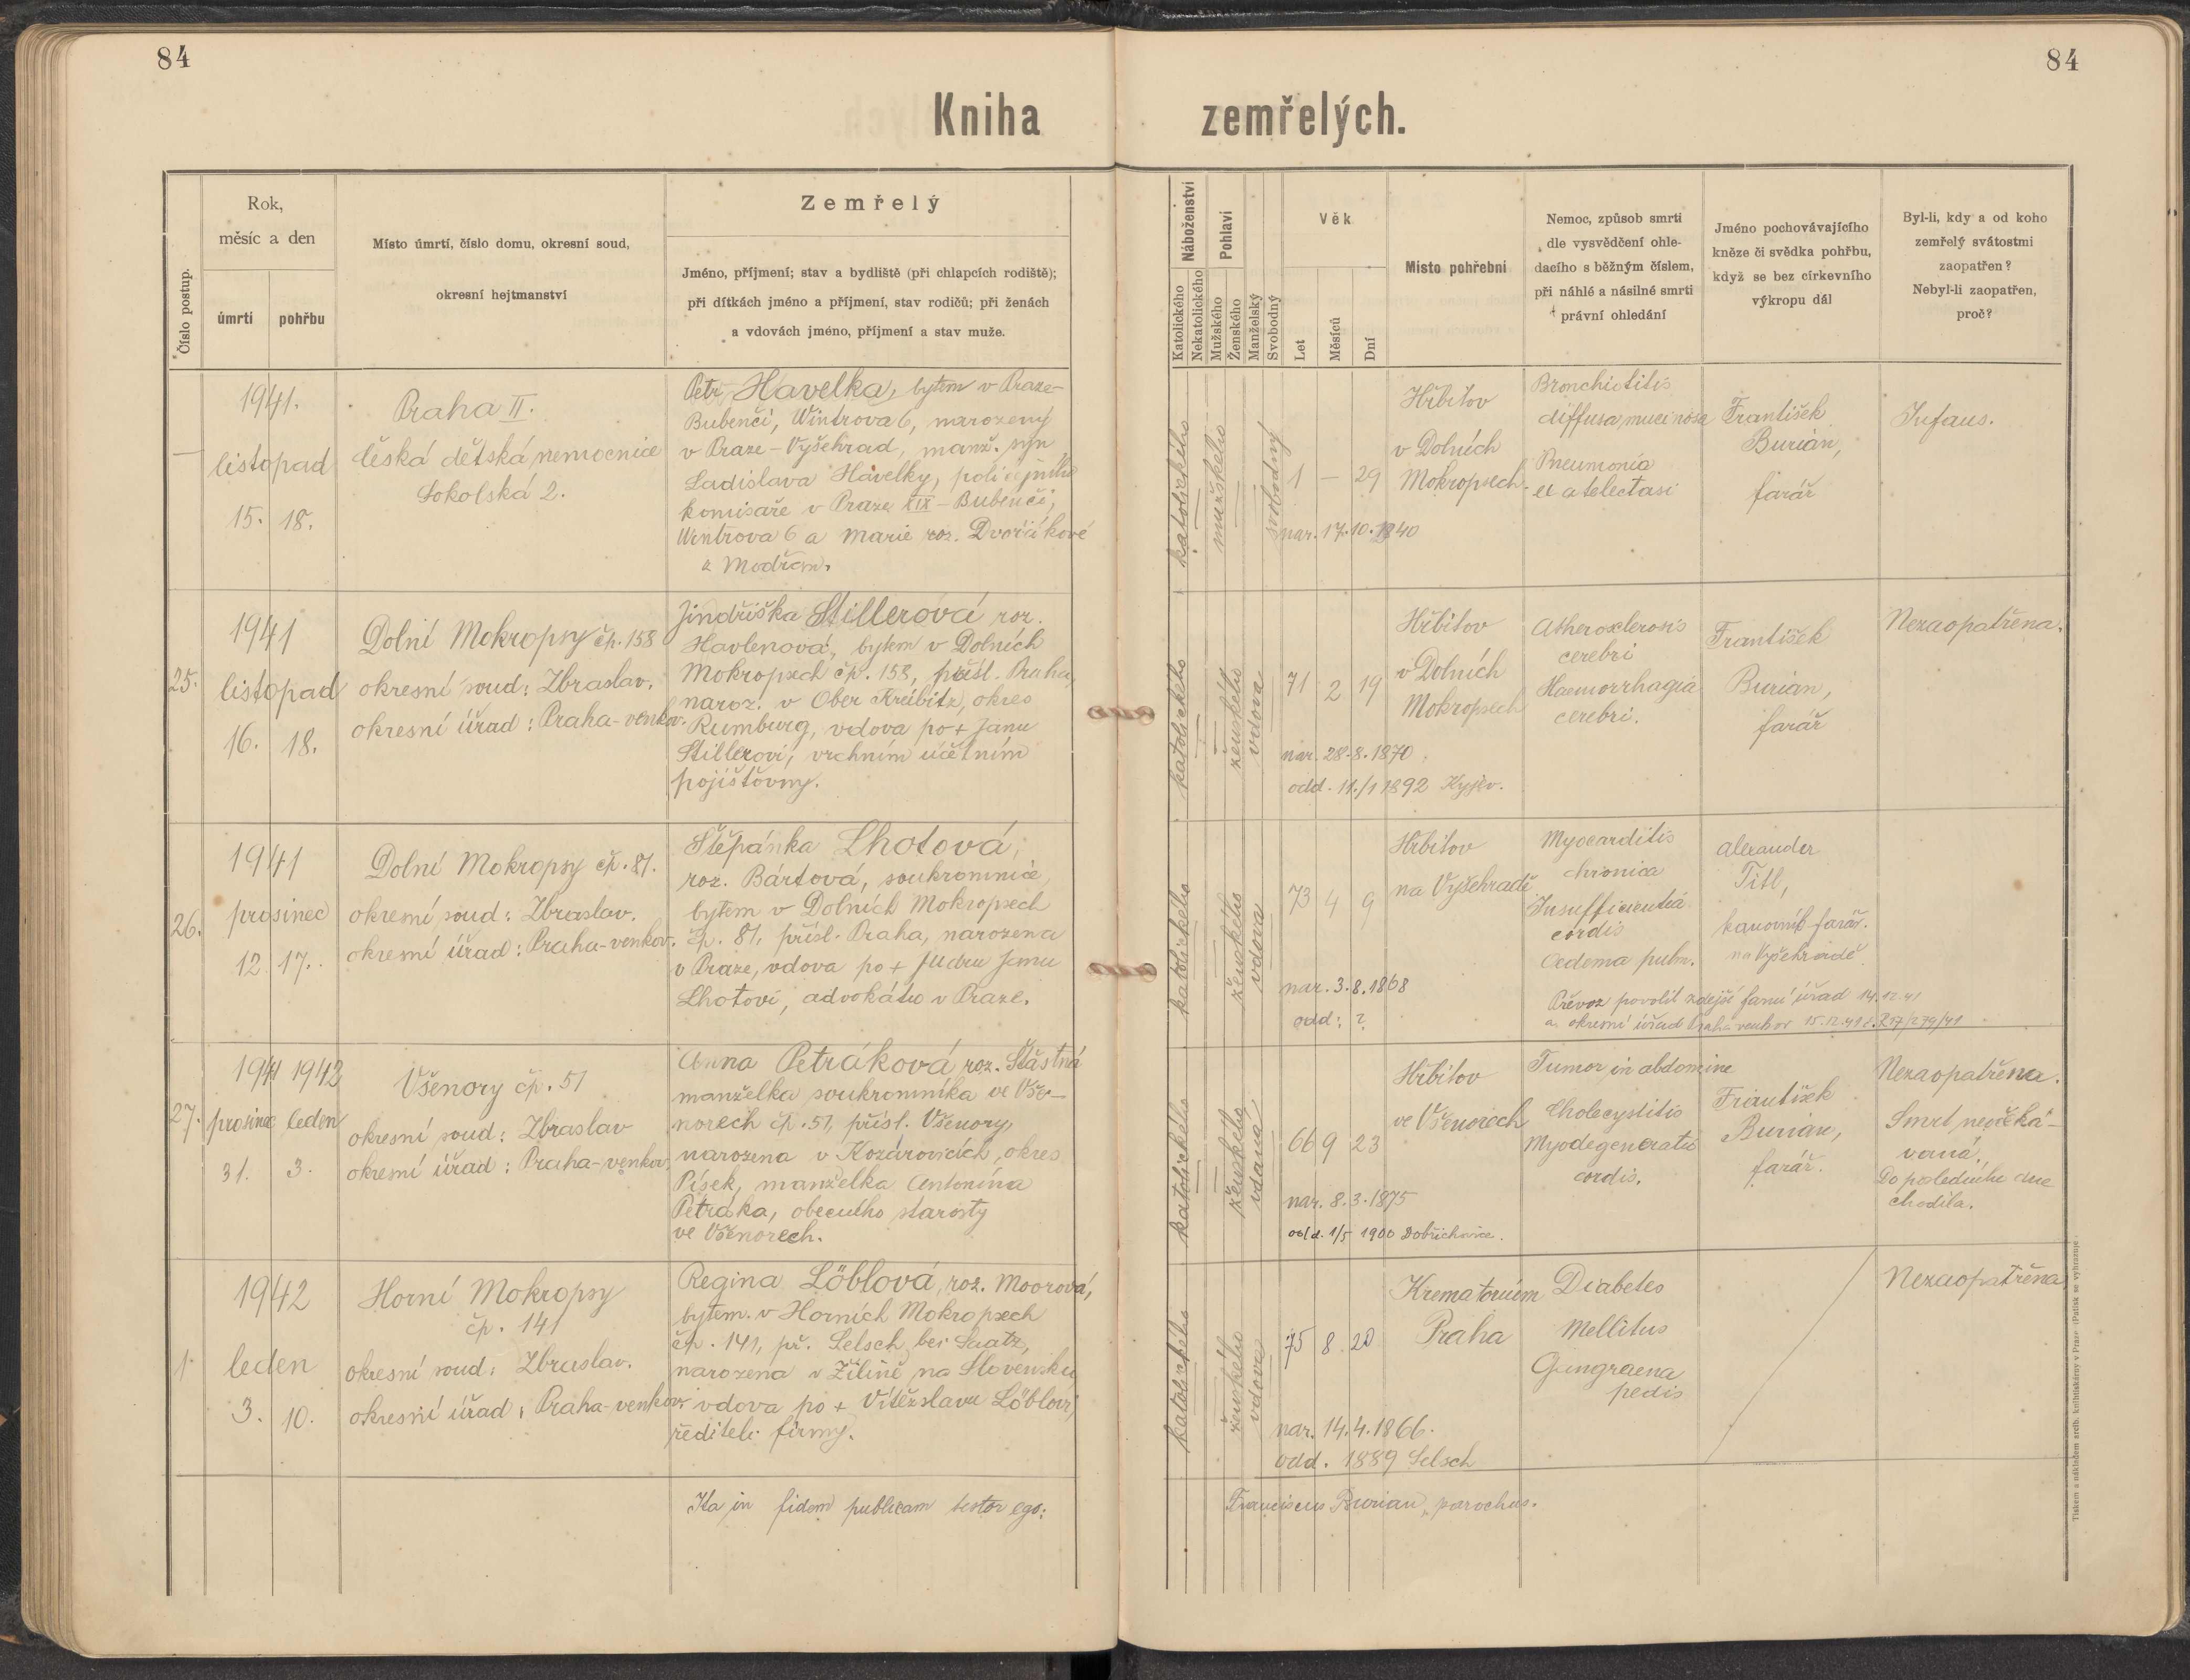 84
84
Kniha zemřelých.
Číslo postup.
Rok,
měsíc a den
úmrtí
pohřbu
Místo úmrtí, číslo domu, okresní soud,
okresní hejtmanství
Zemřelý
Jméno, příjmení; stav a bydliště (při chlapcích rodiště);
při dítkách jméno a příjmení, stav rodičů; při ženách
a vdovách jméno, příjmení a stav muže.
Náboženství
Katolického
Nekatolického
Pohlaví
Mužského
Ženského
Manželský
Svobodný
Věk
Let
Měsíců
Dní
Místo pohřební
Nemoc, způsob smrti
dle vysvědčení ohle-
dacího s běžným číslem,
při náhlé a násilné smrti
právní ohledání
Jméno pochovávajícího
kněze či svědka pohřbu,
když se bez církevního
výkropu dál
Byl-li, kdy a od koho
zemřelý svátostmi
zaopatřen?
Nebyl-li zaopatřen,
proč?
—
1941.
listopad
15. 18.
Praha II.
česká dětská nemocnice
Sokolská 2.
Petr Havelka, bytem v Praze-
Bubenči, Wintrova 6, narozený
v Praze - Vyšehrad, manž. syn
Ladislava Havelky, policejního
komisaře v Praze XIX - Bubenči,
Wintrova 6 a Marie roz. Dvořákové
z Modřan.
katolického
mužského
svobodný
1 — 29
nar. 17.10.1940
Hřbitov
v Dolních
Mokropsech
Bronchiotitis
diffusa, mucinosa
Pneumonia
et atelectasi
František
Burian,
farář
Infans.
25.
1941
listopad
16. 18.
Dolní Mokropsy čp. 158
okresní soud: Zbraslav.
okresní úřad: Praha-venkov.
Jindřiška Stillerová roz.
Havlenová, bytem v Dolních
Mokropsech čp. 158, přísl. Praha,
naroz. v Ober Kreibitz, okres
Rumburg, vdova po + Janu
Stillerovi, vrchním účetním
pojišťovny.
katolického
ženského
vdova
71 2 19
nar. 28.8.1870
odd. 11./1 1892 Kyjev.
Hřbitov
v Dolních
Mokropsech
Atherosclerosis
cerebri
Haemorrhagia
cerebri.
František
Burian,
farář
Nezaopatřena.
26.
1941
prosinec
12 17.
Dolní Mokropsy čp. 81.
okresní soud: Zbraslav.
okresní úřad: Praha-venkov.
Štěpánka Lhotová,
roz. Bártová, soukromnice,
bytem v Dolních Mokropsech
čp. 81, přísl. Praha, narozena
v Praze, vdova po + JUDru Janu
Lhotovi, advokátu v Praze.
katolického
ženského
vdova
73 4 9
nar. 3.8.1868
odd: ?
Hřbitov
na Vyšehradě
Myocarditis
chronica
Insufficientia
cordis
Oedema pulm.
Alexander
Titl,
kanovník-farář.
na Vyšehradě.
Převoz povolil zdejší farní úřad 14.12.41
a okresní úřad Praha venkov 15.12.41
27.
1941 1942
prosinec leden
31. 3.
Všenory čp. 51
okresní soud: Zbraslav
okresní úřad: Praha-venkov.
Anna Petráková roz. Šťastná
manželka soukromníka ve Vše-
norech čp. 51, přísl. Všenory,
narozena v Kozárovicích, okres
Písek, manželka Antonína
Petráka, obecního starosty
ve Všenorech.
katolického
ženského
vdaná
66 9 23
nar. 8.3.1875
odd. 1/5 1900 Dobřichovice.
Hřbitov
ve Všenorech
Tumor in abdomine
Cholecystitis
Myodegeneratio
cordis.
František
Burian,
farář.
Nezaopatřena.
Smrt neočeká-
vaná.
Do posledního dne
chodila.
1.
1942
leden
3. 10.
Horní Mokropsy
čp. 141
okresní soud: Zbraslav.
okresní úřad: Praha-venkov.
Regina Löblová, roz. Moorová,
bytem v Horních Mokropsech
čp. 141, př. Selsch bei Saatz,
narozena v Žilině na Slovensku
vdova po + Vítězslavu Löblovi,
řediteli firmy.
katolického
ženského
vdova
75 8 20
nar. 14.4.1866.
odd. 1889 Selsch
Krematorium
Praha
Diabetes
Mellitus
Gangraena
pedis
Nezaopatřena
Ita in fidem publicam testor ego:
Franciscus Burian, parochus.